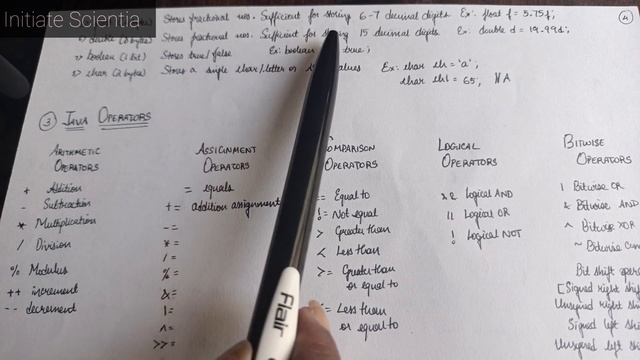 Initiate Scientia
4
Stores fractional nos. Sufficient for storing 6-7 decimal digits. Ex: float f = 5.75f;
double (8 bytes) Stores fractional nos. Sufficient for storing 15 decimal digits. Ex: double d = 19.99d;
boolean (1 bit) Stores true/false Ex: boolean true;
char (2 bytes) Stores a single char/letter or values Ex: char ch = 'a';
char ch1 = 65;
3 JAVA OPERATORS
ARITHMETIC OPERATORS
+ Addition
- Subtraction
* Multiplication
/ Division
% Modulus
++ increment
-- decrement
ASSIGNMENT OPERATORS
= equals
+= addition assignment
-=
*=
/=
%=
&=
|=
^=
>>=
COMPARISON OPERATORS
== Equal to
!= Not equal
> Greater than
< Less than
>= Greater than
or equal to
<= Less than
or equal to
LOGICAL OPERATORS
&& Logical AND
|| Logical OR
! Logical NOT
BITWISE OPERATORS
| Bitwise OR
& Bitwise AND
^ Bitwise XOR
~ Bitwise
Bit shift
[Signed right
Unsigned right
Signed left
Unsigned left
Flair